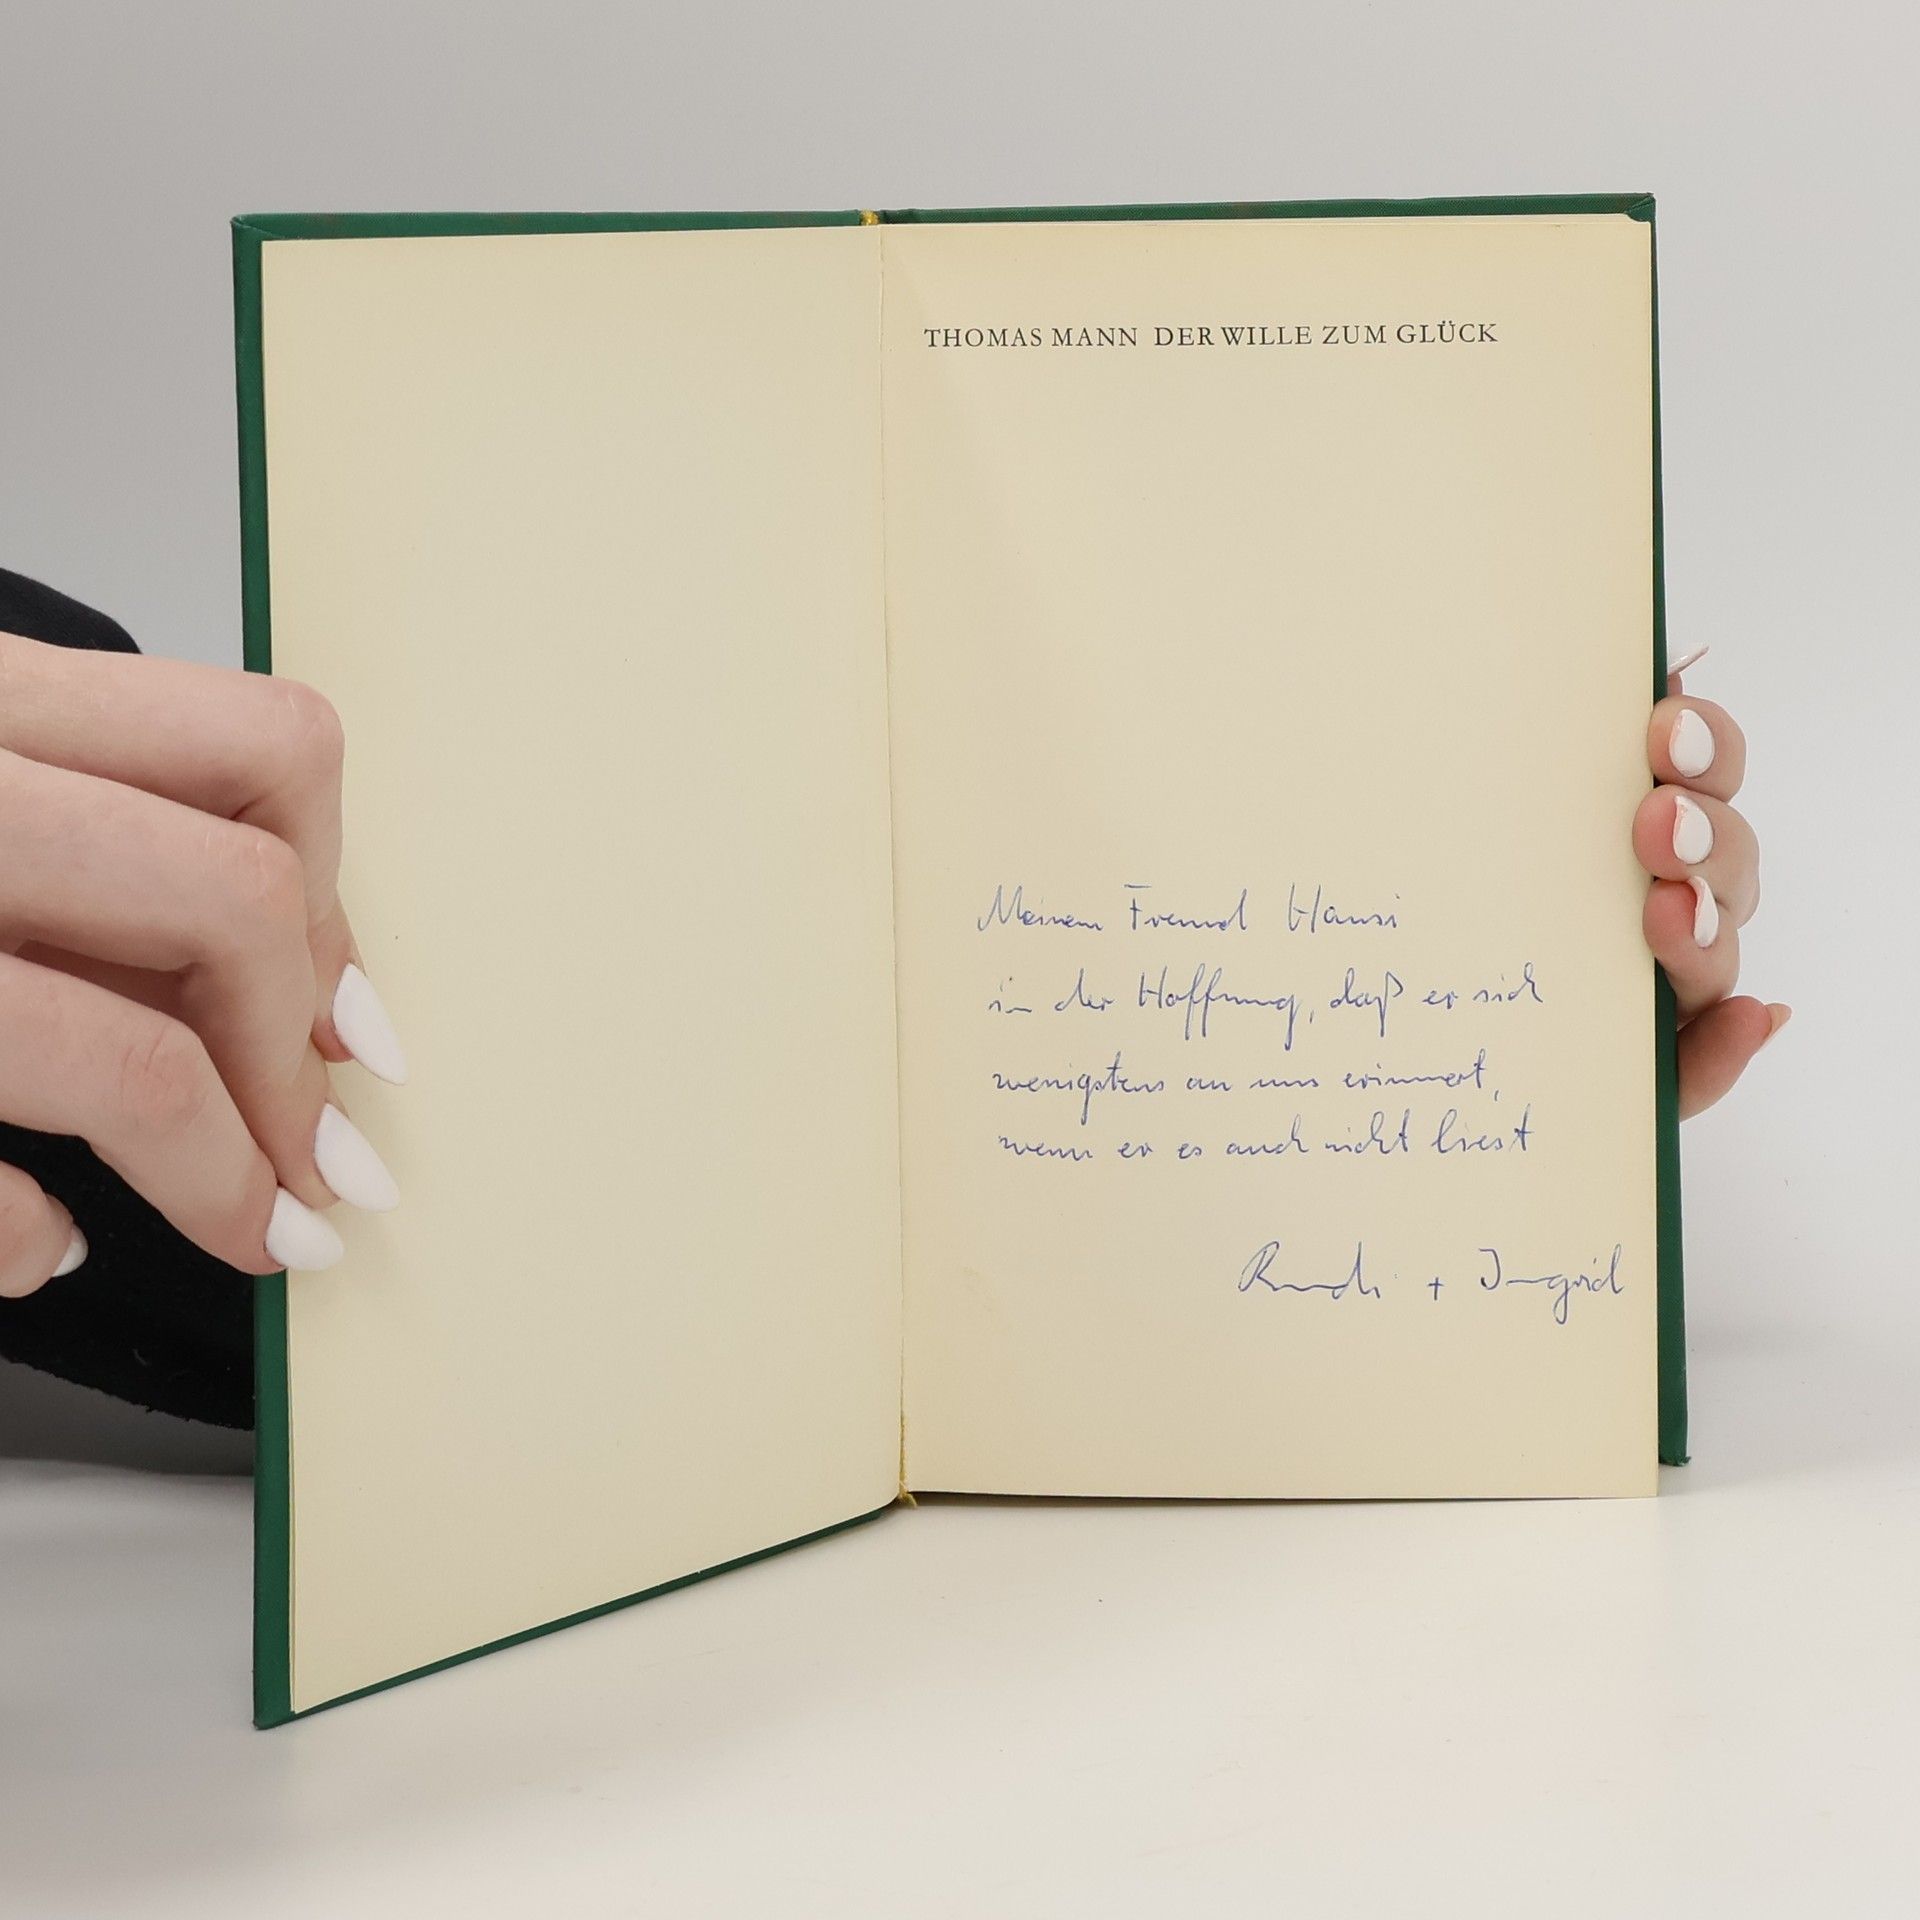 THOMAS MANN DER WILLE ZUM GLÜCK
Meinem Freund Hansi
in der Hoffnung, daß er sich
wenigstens an uns erinnert,
wenn er es auch nicht liest
Rudi + Ingrid